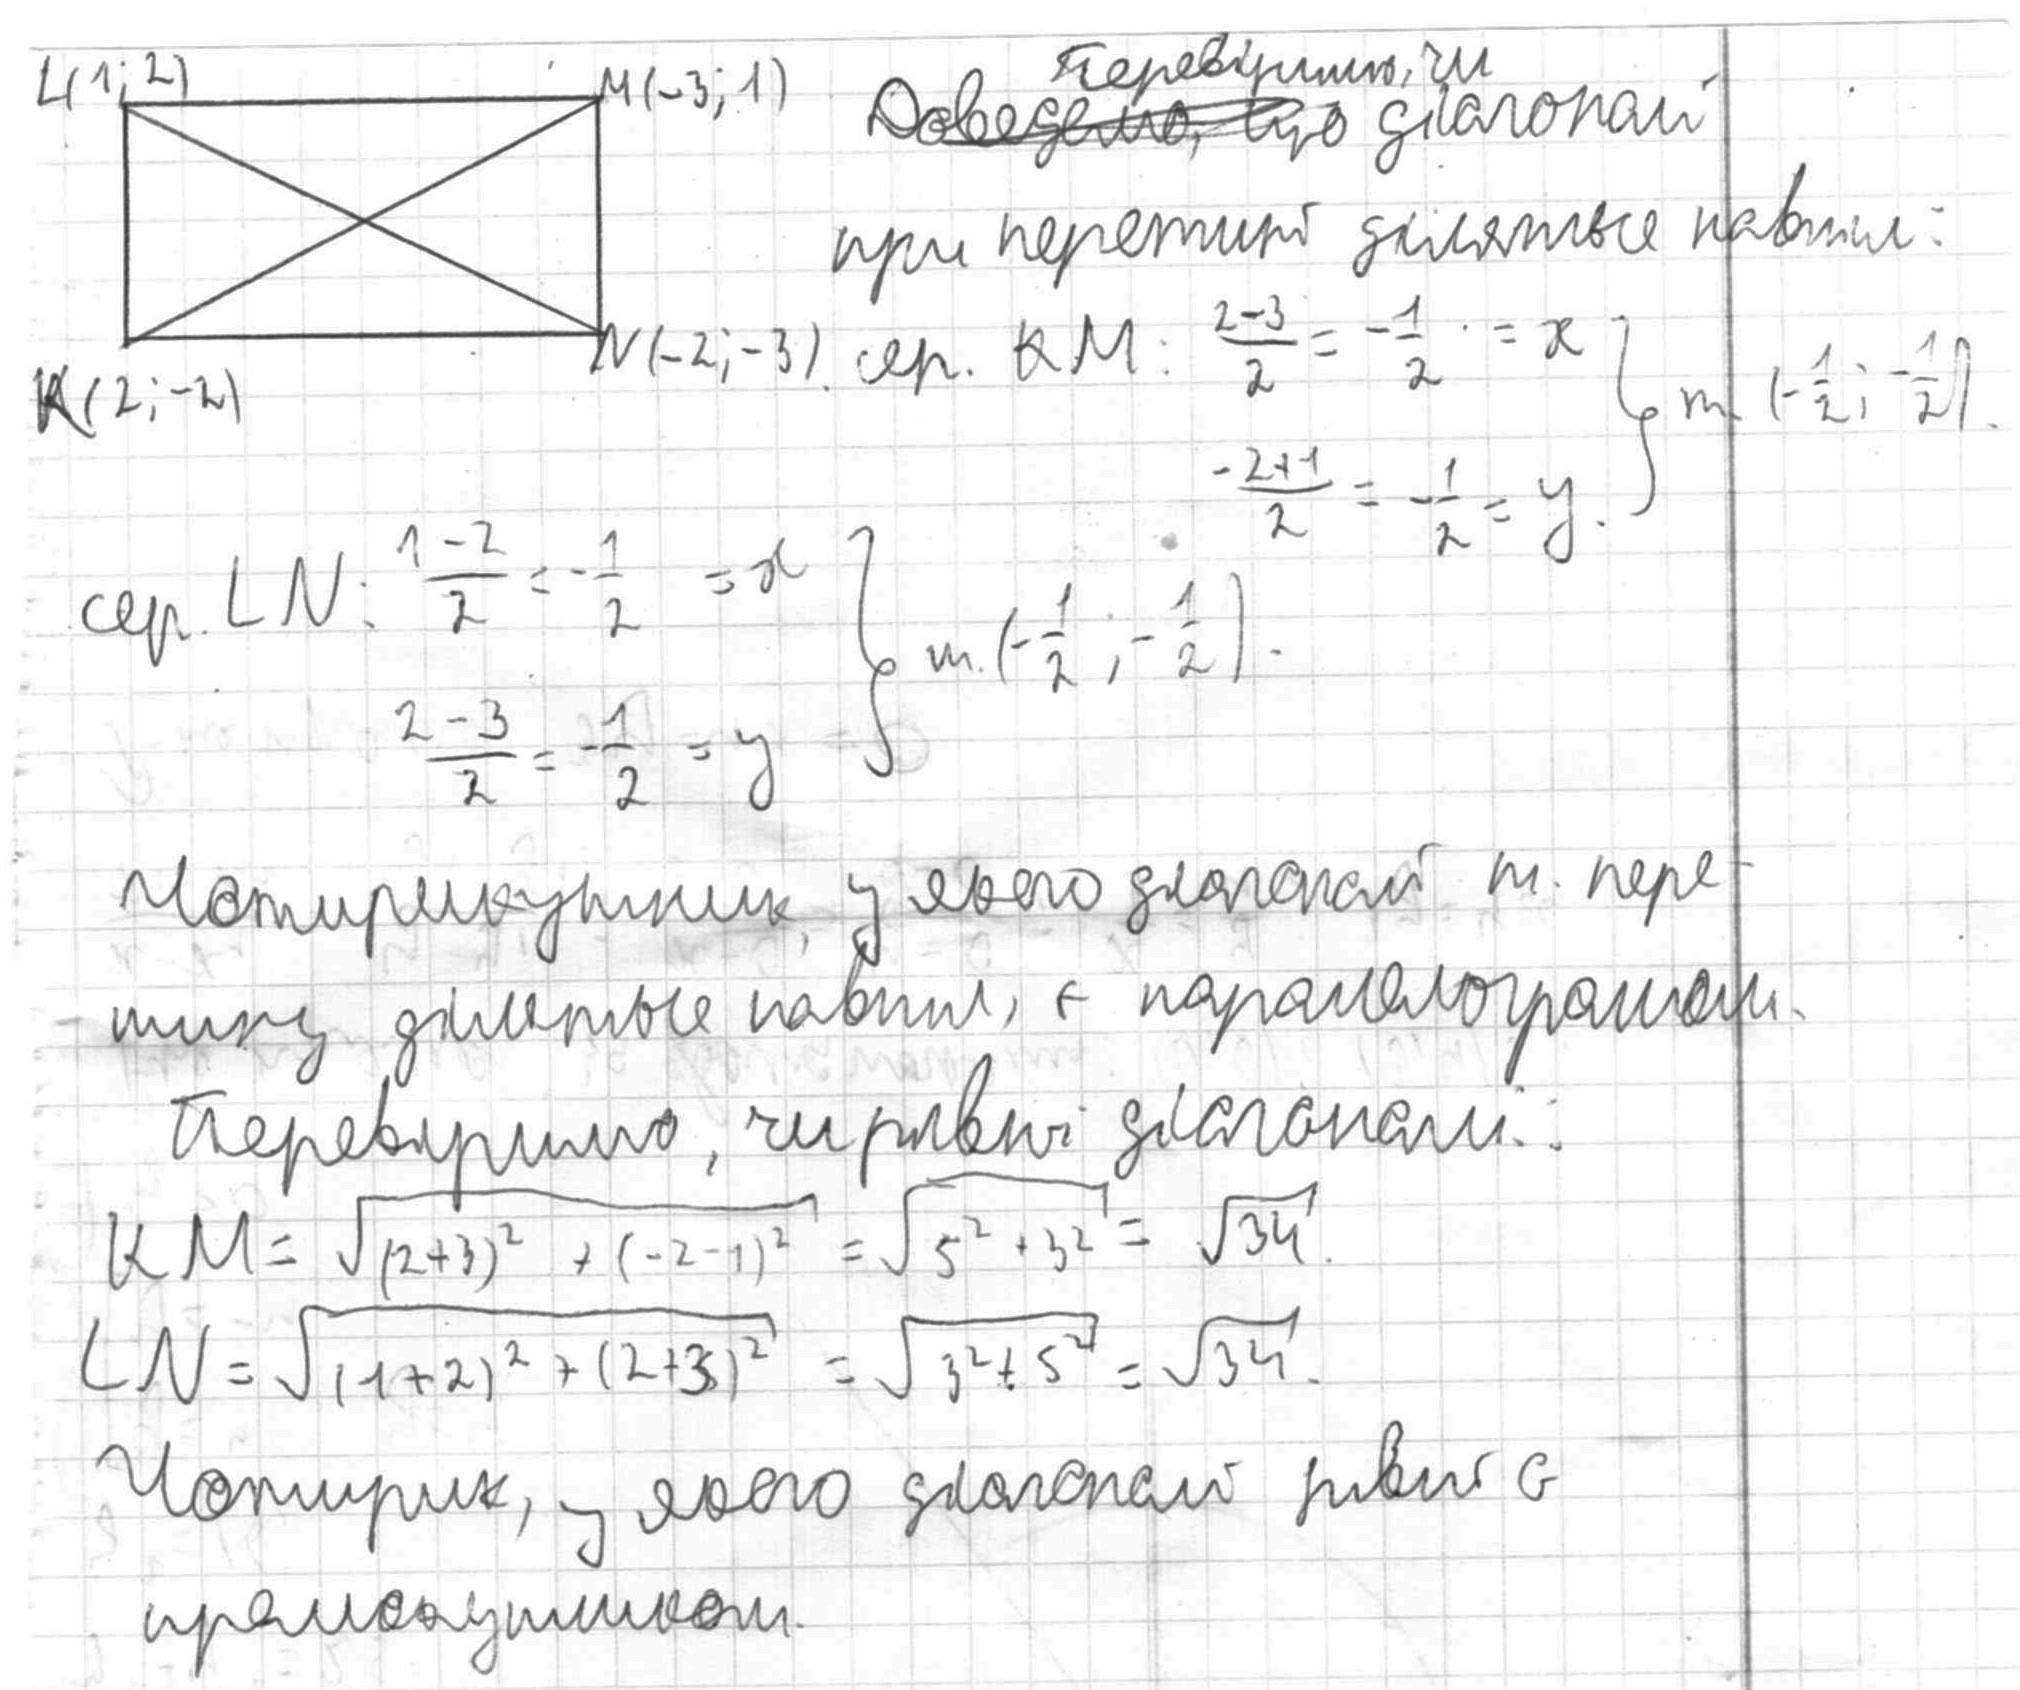 L(1; 2)
M(-3; 1)
Перевіримо, чи
Доведемо, що діагоналі
при перетині діляться навпіл:
N(-2; -3).
K(2; -2)
сер. KM: (2-3)/2 = -1/2 = x
т. (-1/2; -1/2).
(-2+1)/2 = -1/2 = y.
сер. LN: (1-2)/2 = -1/2 = x
т. (-1/2; -1/2).
(2-3)/2 = -1/2 = y
Чотирикутник, у якого діагоналі т. пере-
тину діляться навпіл, є паралелограмом.
Перевіримо, чи рівні діагоналі:
KM = √((2+3)² + (-2-1)²) = √(5² + 3²) = √34.
LN = √((1+2)² + (2+3)²) = √(3² + 5²) = √34.
Чотирик, у якого діагоналі рівні є
прямокутником.